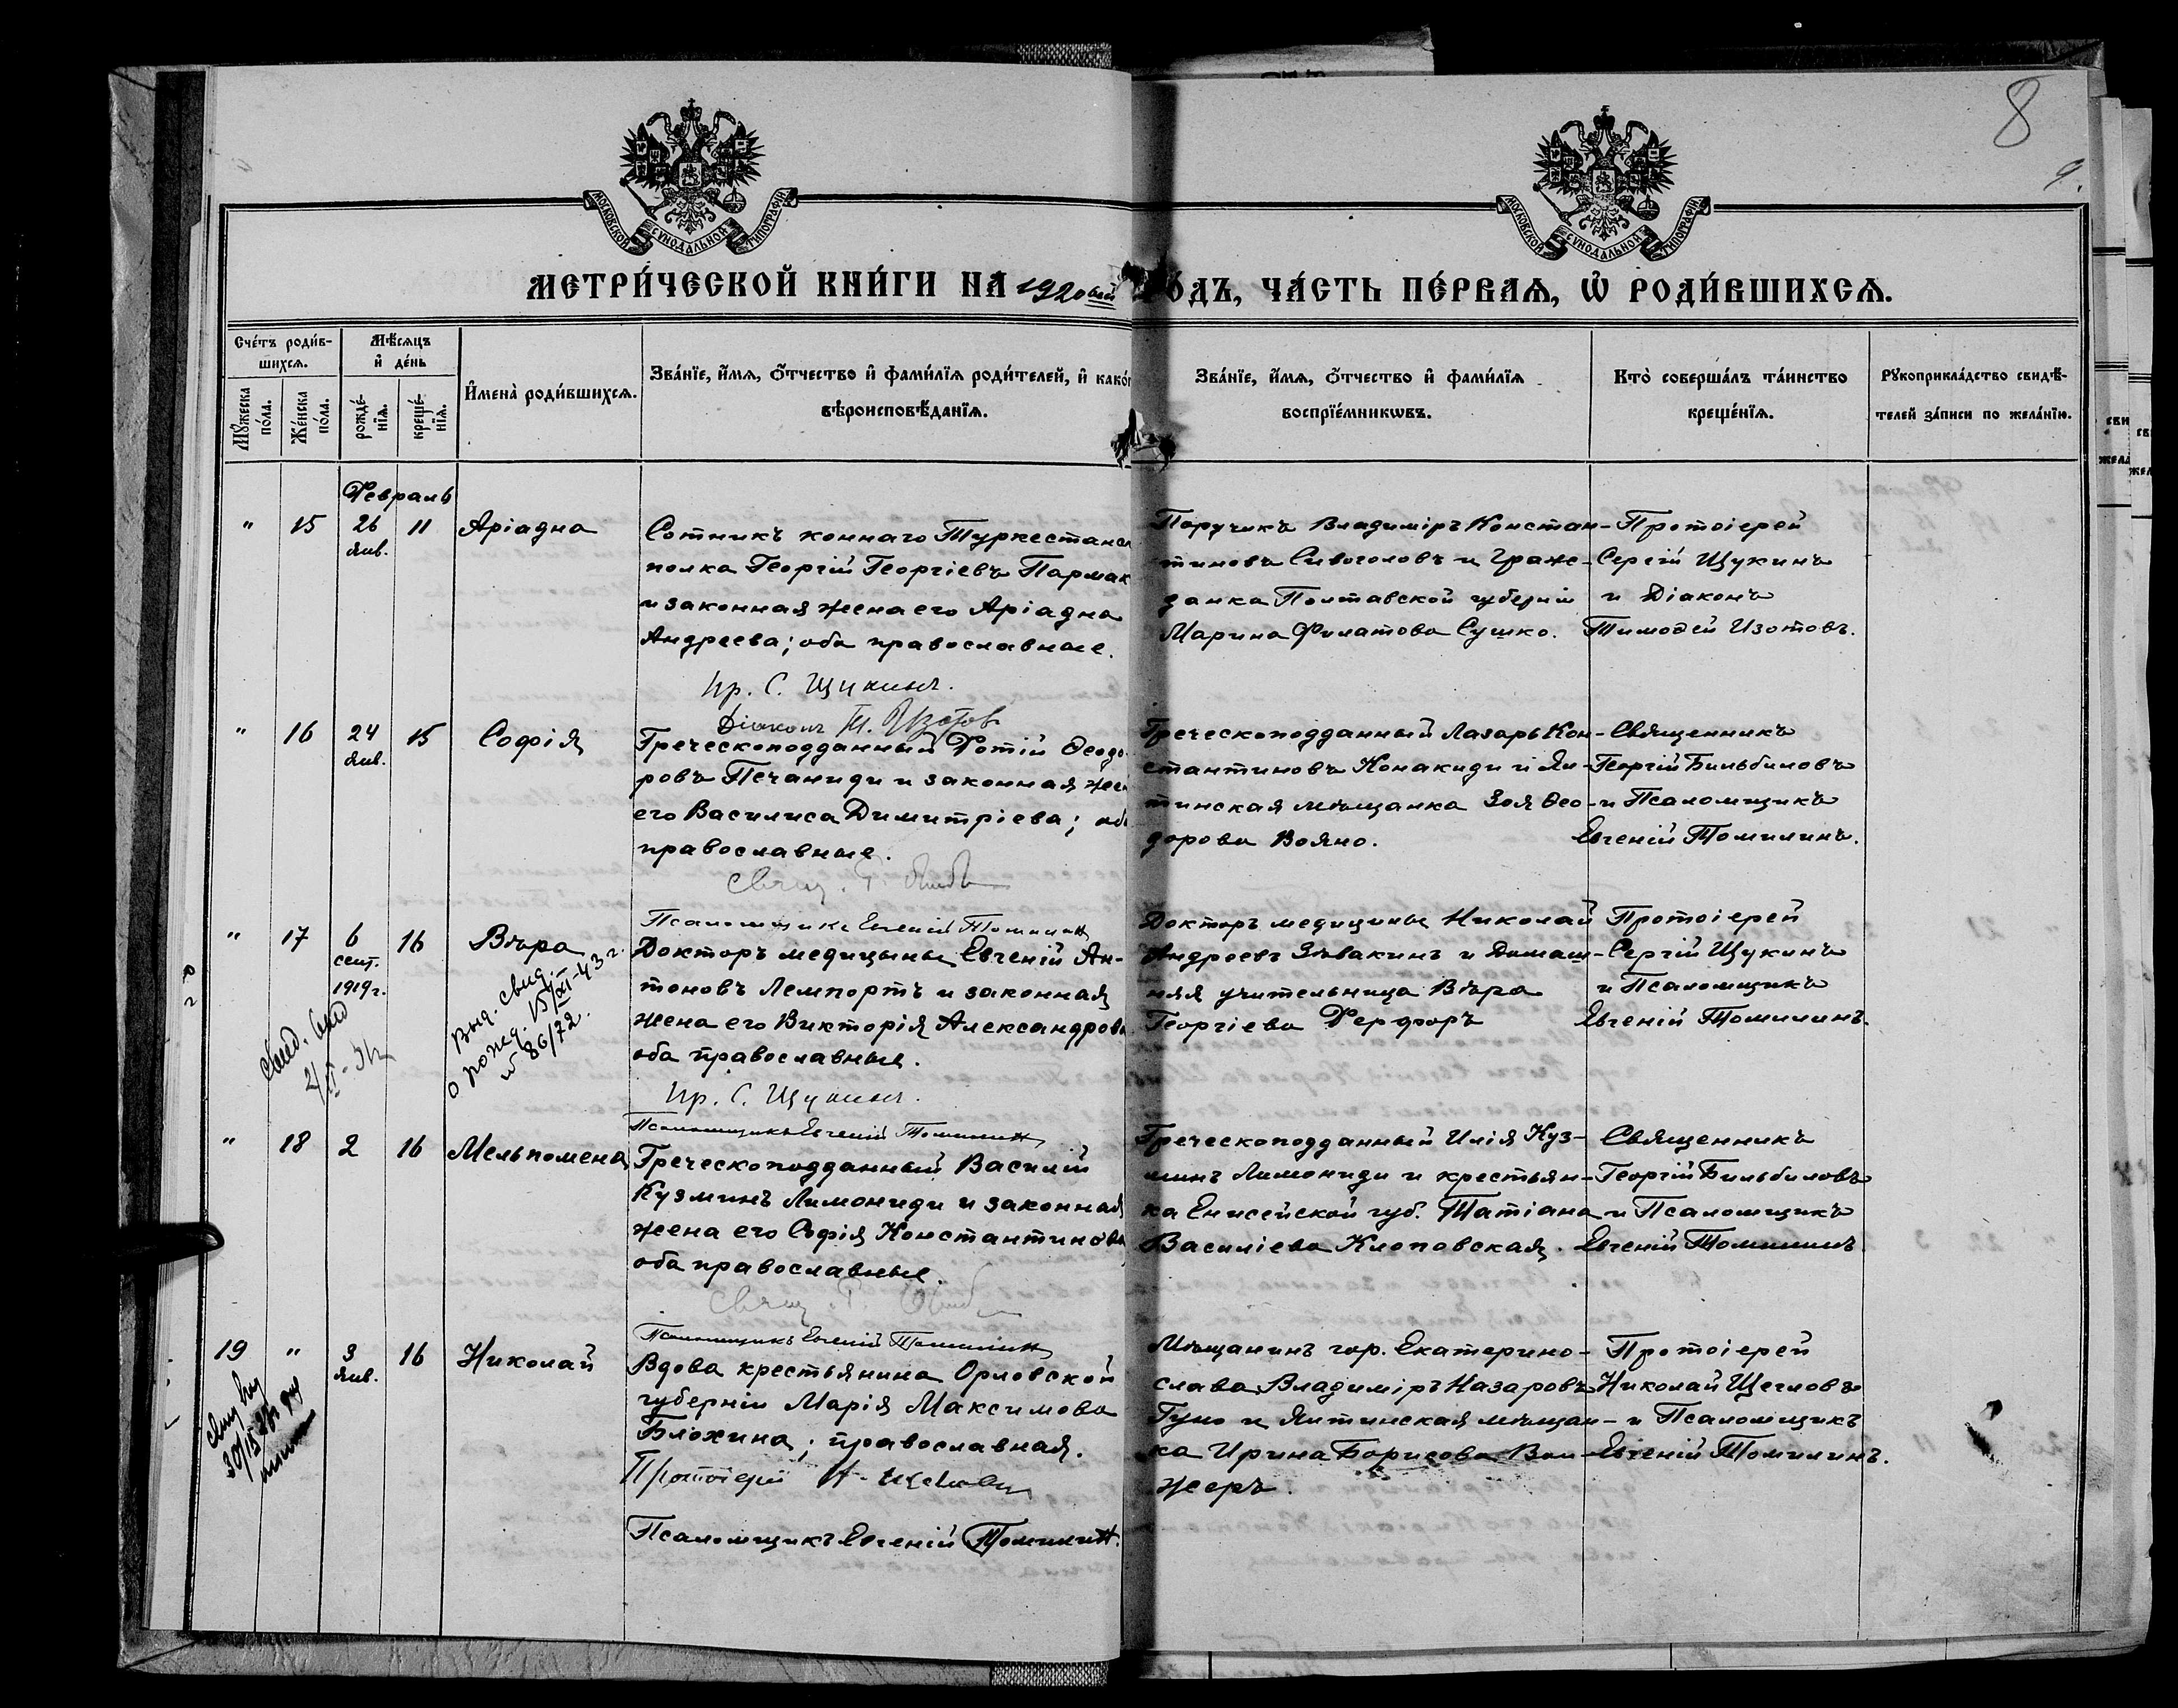 8
9.
МОСКОВСКОЙ СѴНОДАЛЬНОЙ ТИПОГРАФІИ
МОСКОВСКОЙ СѴНОДАЛЬНОЙ ТИПОГРАФІИ
МЕТРИ́ЧЕСКОЙ КНИ́ГИ НА 1920ый ГО́ДЪ, ЧА́СТЬ ПЕ́РВАѦ, Ѡ РОДИ́ВШИХСѦ.
Сче́тъ роди́в-
шихсѧ.
Мꙋ́жеска по́ла.
Же́нска по́ла.
Мѣ́сѧцъ
и҆ де́нь
рожде́-
нїѧ.
креще́-
нїѧ.
И҆мена̀ роди́вшихсѧ.
Зва́нїе, и҆́мѧ, ѻ҆́тчество и҆ фами́лїѧ роди́телей, и҆ како́г
вѣроисповѣ́данїѧ.
Зва́нїе, и҆́мѧ, ѻ҆́тчество и҆ фами́лїѧ
воспрїе́мникѡвъ.
Кто̀ соверша́лъ та́инство
креще́нїѧ.
Рꙋкоприкла́дство свидѣ́-
телей за́писи по жела́нїю.
Февраль
" 15 26 янв. 11 Аріадна
Сотникъ коннаго Туркестанск
полка Георгій Георгіевъ Пармак
и законная жена его Аріадна
Андреева; оба православные.
Пр. С. Щукинъ.
Діаконъ Т. Изотов
Поручикъ Владиміръ Констан-
тиновъ Сивоголовъ и Граж-
данка Полтавской губерніи
Марина Филатова Сушко.
Протоіерей
Сергій Щукинъ
и Діаконъ
Тимоѳей Изотовъ.
" 16 24 янв. 15 Софія
Греческоподданный Фотій Ѳеодо-
ровъ Печаниди и законная жен
его Василиса Димитріева; оба
православные.
Свящ. Г.
Псаломщикъ Евгеній Томилин
Греческоподданный Лазарь Кон-
стантиновъ Конакиди и Ял-
тинская мѣщанка Зоя Ѳео-
дорова Вояно.
Священникъ
Георгій Бильбиловъ
и Псаломщикъ
Евгеній Томилинъ.
" 17 6 сент. 1919 г. 16 Вѣра
Выд. свид.
о рожд. 15/XI-43 г.
№ 86/72.
Докторъ медицины Евгеній Ан-
тоновъ Лемпортъ и законная
жена его Викторія Александрова
оба православные.
Пр. С. Щукинъ.
Псаломщикъ Евгеній Томилин
Докторъ медицины Николай
Андреевъ Зѣвакинъ и Домаш-
няя учительница Вѣра
Георгіева Ферфоръ
Протоіерей
Сергій Щукинъ
и Псаломщикъ
Евгеній Томилинъ.
" 18 2 16 Мельпомена
Греческоподданный Василій
Кузминъ Лимониди и законная
жена его Софія Константинова
оба православные.
Свящ. Г.
Псаломщикъ Евгеній Томилин
Греческоподданный Илія Куз-
минъ Лимониди и крестьян-
ка Енисейской губ. Татіана
Василіева Клоповская.
Священникъ
Георгій Бильбиловъ
и Псаломщикъ
Евгеній Томилинъ.
19 " 3 янв. 16 Николай
Вдова крестьянина Орловской
губерніи Марія Максимова
Блохина; православная.
Протоіерей Н. Щегловъ
Псаломщикъ Евгеній Томилин.
Мѣщанинъ гор. Екатерино-
слава Владиміръ Назаровъ
Гуно и Ялтинская мѣщан-
ка Ирина Борисова Вон-
жеръ.
Протоіерей
Николай Щегловъ
и Псаломщикъ
Евгеній Томилинъ.